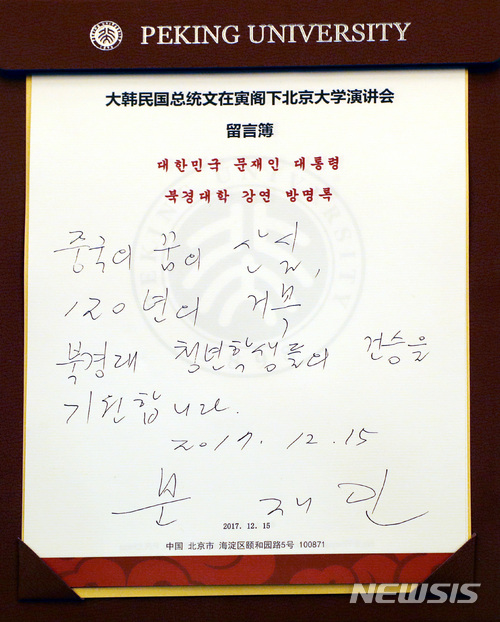 PEKING UNIVERSITY
大韩民国总统文在寅阁下北京大学演讲会
留言簿
대한민국 문재인 대통령
북경대학 강연 방명록
중국의 꿈의 산실,
120년의 거목
북경대 청년학생들의 건승을
기원합니다.
2017. 12. 15
문 재 인
2017. 12. 15
中国 北京市 海淀区颐和园路5号 100871
NEWSIS